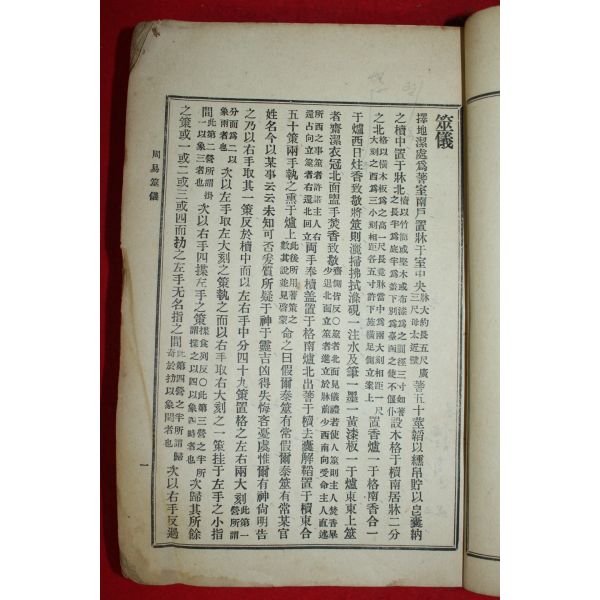 筮儀
擇地潔處爲蓍室南戶置牀于室中央牀大約長五尺廣三尺毋太近壁蓍五十莖韜以纁帛貯以皂囊納
之櫝中置于牀北櫝以竹筒或堅木或布漆爲之圓徑三寸如蓍之長半爲底半爲蓋下別爲臺函之使不偃仆設木格于櫝南居牀二分
之北格以橫木板爲之高一尺長竟牀當中爲兩大刻相距一尺大刻之西爲三小刻相距各五寸許下施橫足側立案上置香爐一于格南香合一
于爐南日炷香致敬將筮則灑掃拂拭滌硯一注水及筆一墨一黃漆板一于爐東東上筮
者齋潔衣冠北面盥手焚香致敬齋側皆反○筮者北面見儀禮若使人筮則主人焚香畢少退北面立筮者進立於牀前少西南向受命主人直述
所西之事筮者許諾主人右還西向立筮者右還北向立兩手奉櫝蓋置于格南爐北出蓍于櫝去囊解韜置于櫝東合
五十策兩手執之熏于爐上此後所用蓍策之數其說並見啓蒙命之曰假爾泰筮有常假爾泰筮有常某官
姓名今以某事云云未知可否爰質所疑于神于靈吉凶得失悔吝憂虞惟爾有神尙明告
之乃以右手取其一策反於櫝中而以左右手中分四十九策置格之左右兩大刻此第一營所謂
分而爲二以象兩者也次以左手取左大刻之策執之而以右手取右大刻之一策挂于左手之小指
間此第二營所謂掛一以象三者也次以右手四揲左手之策揲食列反○此第三營之半所謂揲之以四以象四時者也次歸其所餘
之策或一或二或三或四而扐之左手无名指之間此第四營之半所謂歸奇於扐以象閏者也次以右手反過
周易筮儀
一